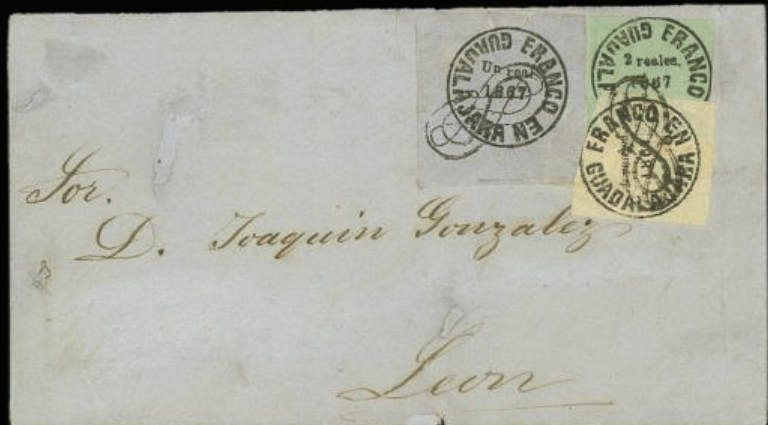 FRANCO EN GUADALAJARA
Un real
1867
FRANCO GUADALA
2 reales.
1867
FRANCO EN GUADALAJARA
Sor.
D. Joaquin Gonzalez
Leon